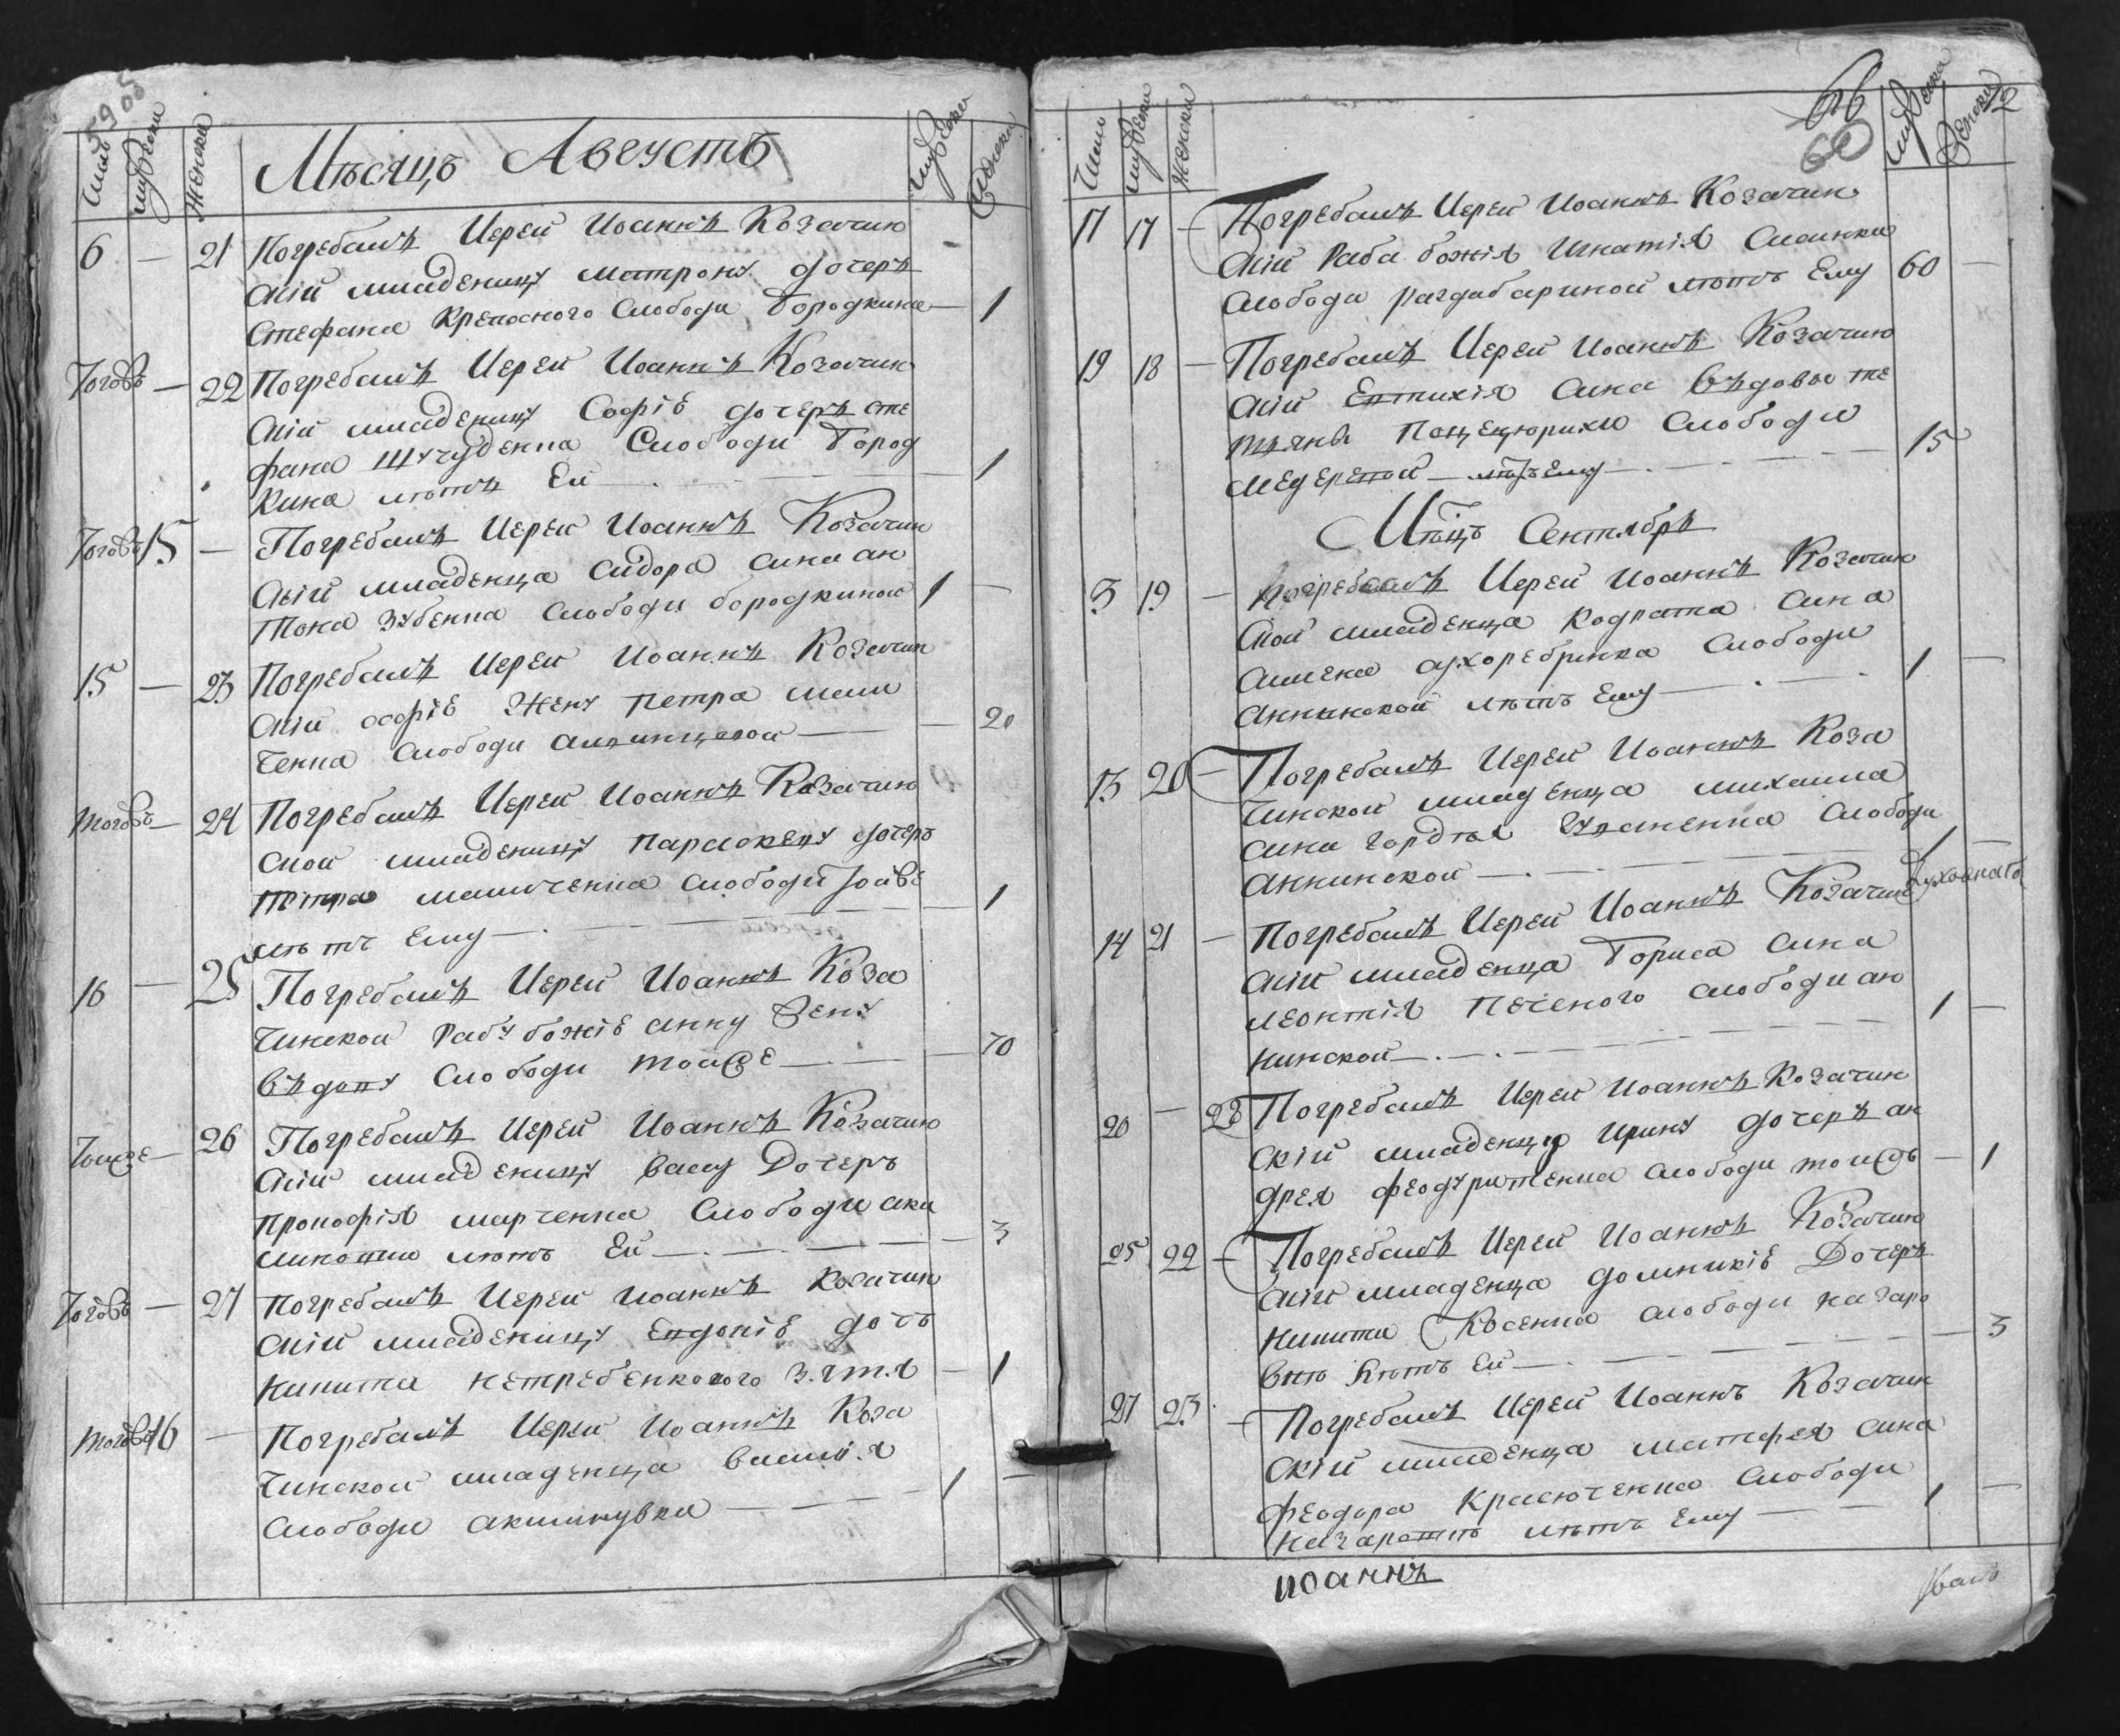 Число мужеска женска
Мѣсяцъ Августъ
мужеска женска
6 — 21 Погребалъ Иерей Иоаннъ Козачин
скiй младеницу матрону дочерь
Стефана Крепосного Слободи Бородкина — 1
Тогожъ — 22 Погребалъ Иерей Иоаннъ Козачин
скiй младеницу Софiѣ дочерь сте
фана Слободи Бород
кина лѣтъ Ей — 1
Тогожъ 15 — Погребалъ Иерей Иоаннъ Козачин
скiй младенца Сидора сина ан
тона зубенка слободи бородкиной 1 —
15 — 23 Погребалъ Иерей Иоаннъ Козачин
скiй софiѣ Жену петра мали
ченка Слободи — 20
тогожъ — 24 Погребалъ Иерей Иоаннъ Козачин
ской младеницу параскеву дочерь
петра маличенка слободи тойже
лѣтъ Ему — 1
16 — 25 Погребалъ Иерей Иоаннъ Коза
чинской рабу божiѣ анну Жену
вѣдову Слободи тойже — 70
Тоиже — 26 Погребалъ Иерей Иоаннъ Козачин
скiй младеницу васу Дочерь
прокофiя марченка Слободи аки
лѣтъ Ей — 3
Тогожъ — 27 Погребалъ Иерей Иоаннъ Козачин
скiй младеницу Евдокiѣ дочь
никита нетребенкового зятя — 1
тогожъ 16 — Погребалъ Иерей Иоаннъ Коза
чинской младенца василiя
Слободи акимнувки — 1 —
66
60
Число мужеска женска
мужеска женска
17 17 — Погребалъ Иерей Иоаннъ Козачин
скiй Раба божiя Игнатiя
Слободи раздабариной лѣтъ Ему 60 —
19 18 — Погребалъ Иерей Иоаннъ Козачин
скiй Евтихiя сина вѣдовы те
тяны Слободи
— лѣтъ Ему — 15
Мсцъ Сентябрь
3 19 — Погребалъ Иерей Иоаннъ Козачин
ской младенца кодрата сина
сухоребрика Слободи
аннинской лѣтъ Ему — 1 —
13 20 — Погребалъ Иерей Иоаннъ Коза
чинской младенца михаила
сина гордѣя Слободи
аннинской — 1 —
14 21 — Погребалъ Иерей Иоаннъ Козачин
скiй младенца Бориса сина
леонтiя печеного слободи ан
нинской — 1 —
20 — 28 Погребалъ Иерей Иоаннъ Козачин
скiй младенцу ирину дочерь ан
дрея слободи тоижъ — 1
25 22 — Погребалъ Иерей Иоаннъ Козачин
скiй младенца домникiѣ Дочерь
никити Косенка слободи назаро
вки лѣтъ Ей — 3
27 23 — Погребалъ Иерей Иоаннъ Козачин
скiй младенца матфея сина
феодора Красюченка Слободи
лѣтъ Ему — 1 —
иоаннъ